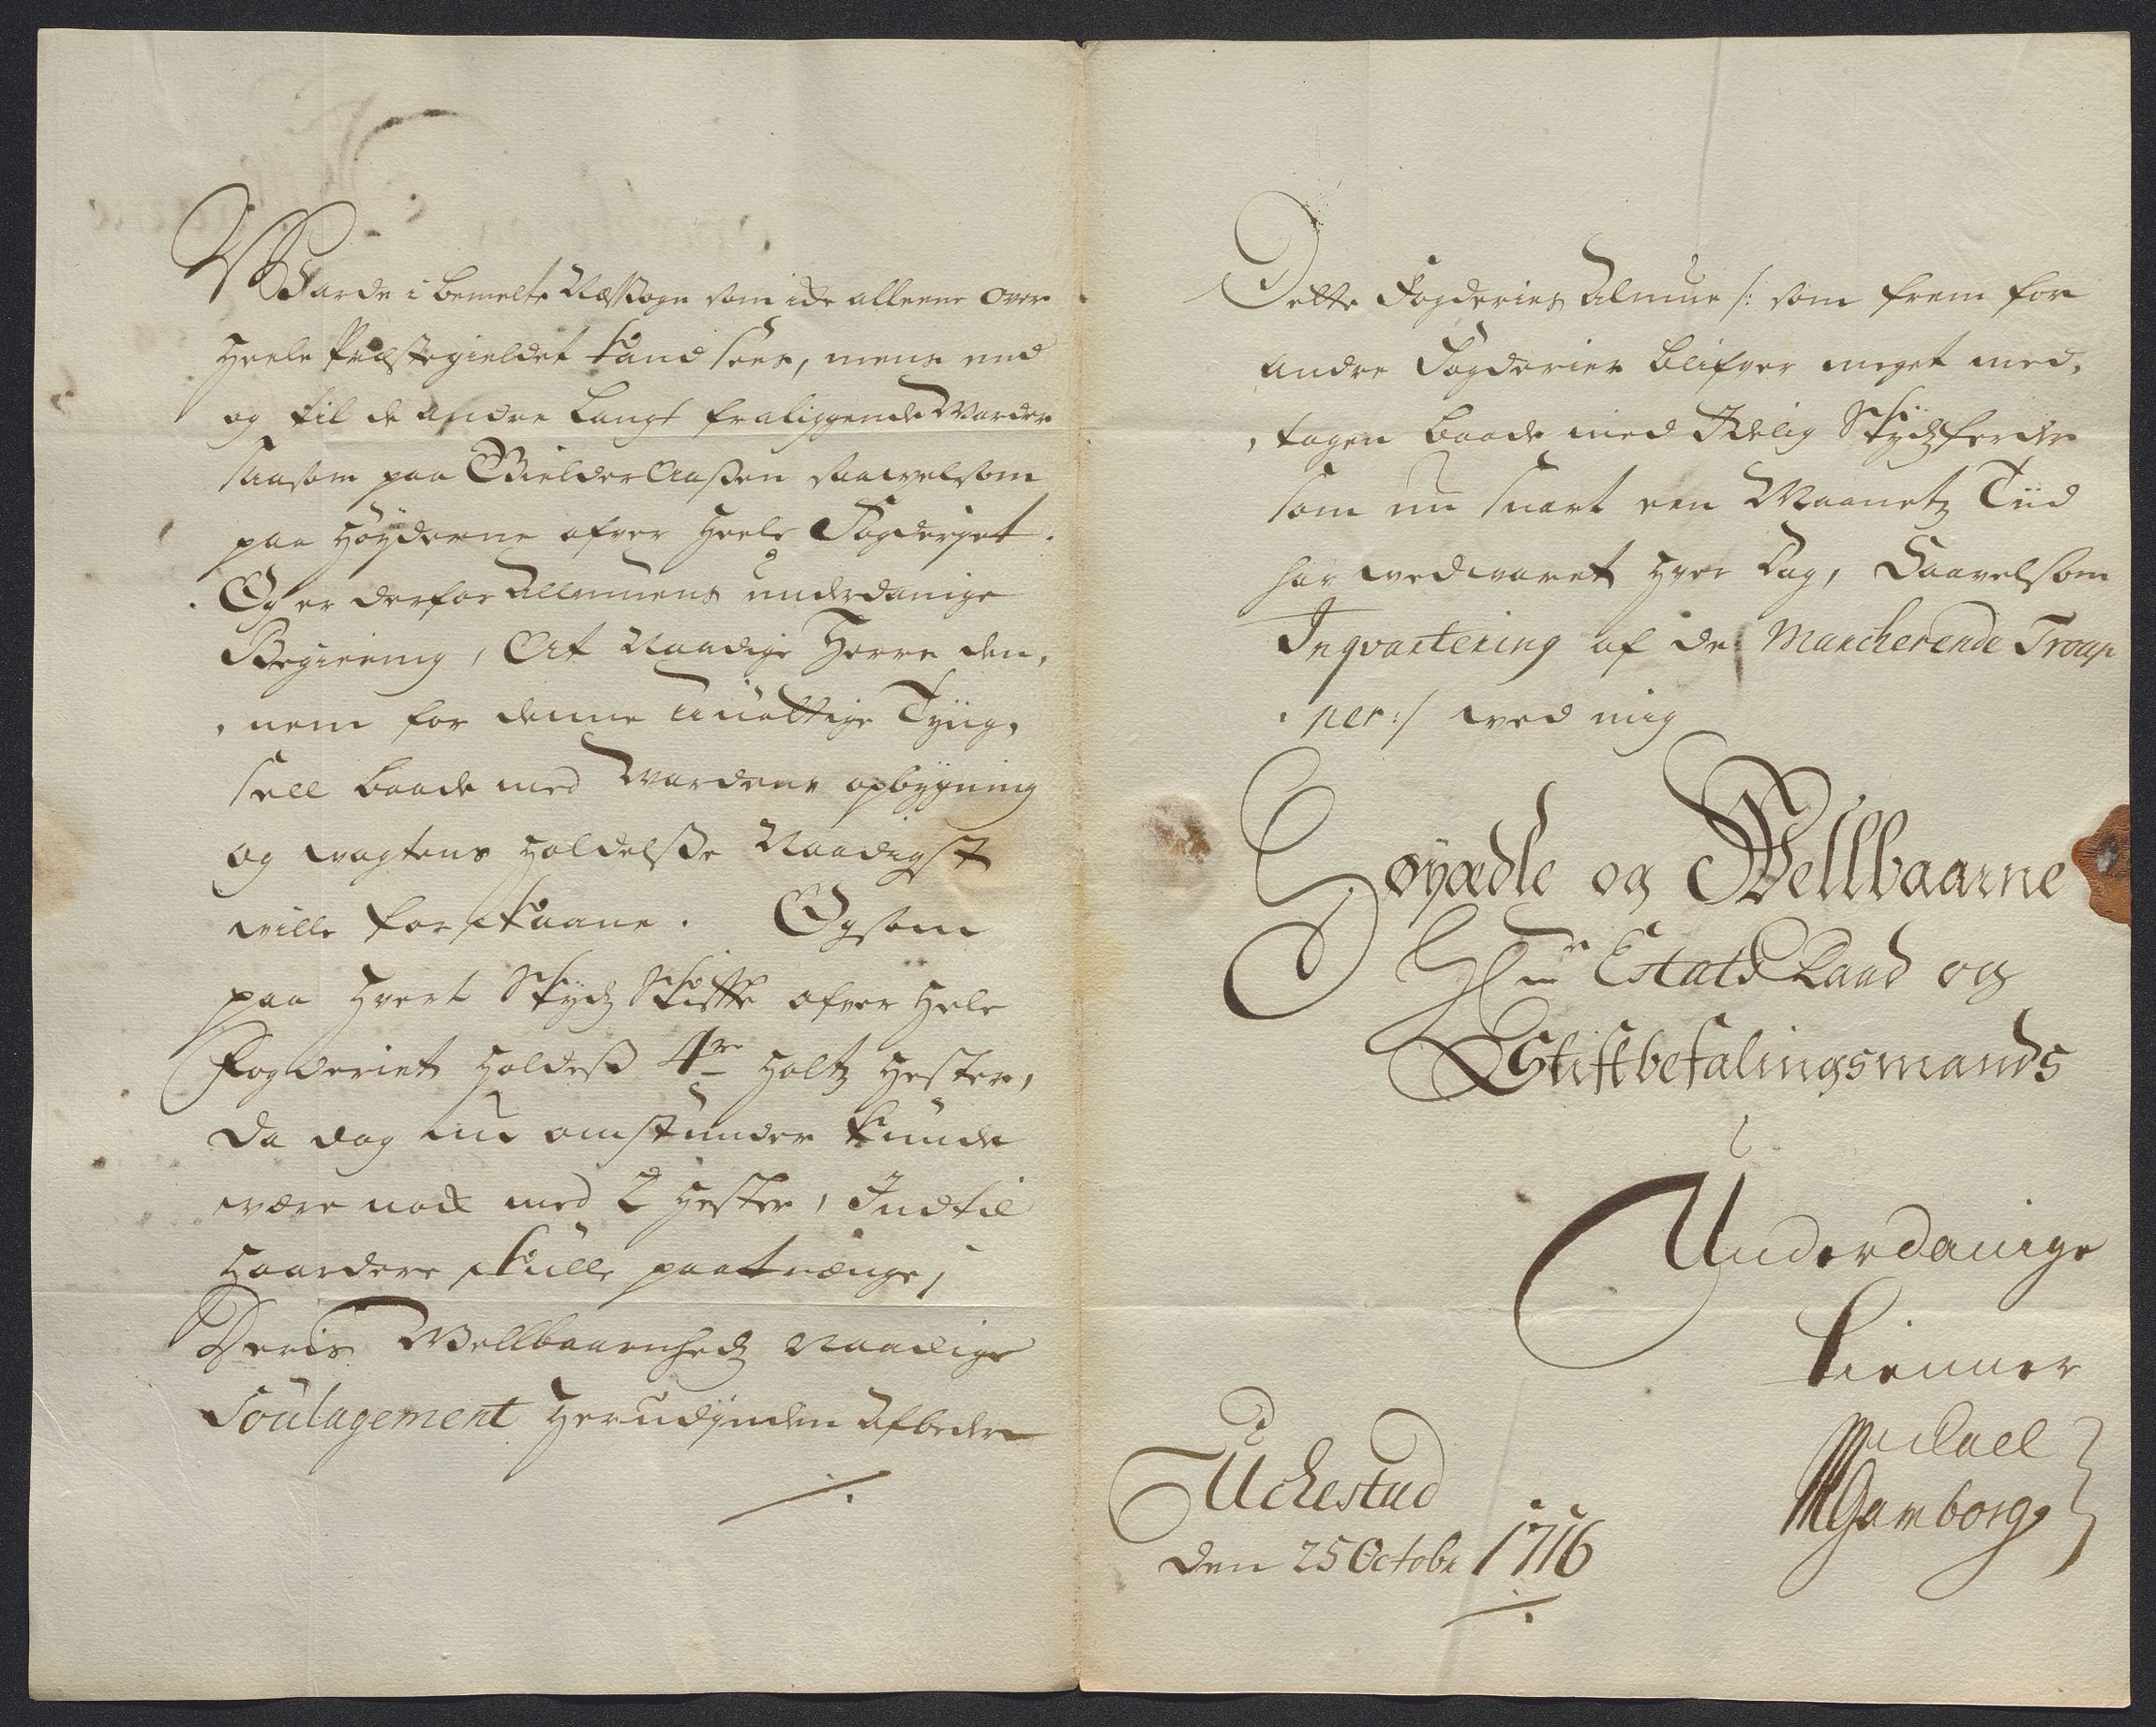 Warde i bemelte Næssogn som icke alleene over
Heele Præstegieldet kand sees, mens end
og til de andre langt fraliggende Warder
saasom paa Gielderaassen saavelsom
paa Høyderne ofver Heele Fogderiet.
Og er derfor Allmuens underdanige
Begiering, At Naadige Herre den,
,nem for denne unøttige Tyng,
sell baade med Wardens opbygning
og wagtens Holdelsse Naadigst
wille forskaane. Og som
paa Hvert Skydz Skiffte ofver Hele
Fogderiet Holdess 4re Holtz Hester,
da dog nu omstunder kunde
være nock med 2 Hester, Indtil
Haardere skulle paatrænge,
Deris Wellbaarenheds Naadige
Soulagement Herudjnden Afbeder
Dette Fogderies Almue /: som frem for
andre Fogderier blifver meget med,
,tagen baade med Idelig Skydzferder
som nu snart een Maanetz Tiid
har wedvaret Hver Dag, Saavelsom
Inqvartering af de Marcherende Troup
,per :/ wed mig
Høyædle og Wellbaarne
Hr Estats Raad og
Stiftbefalingsmands
Underdanige
tienner
Michael
Gamborg
Uchestad
den 25 Octobr 1716